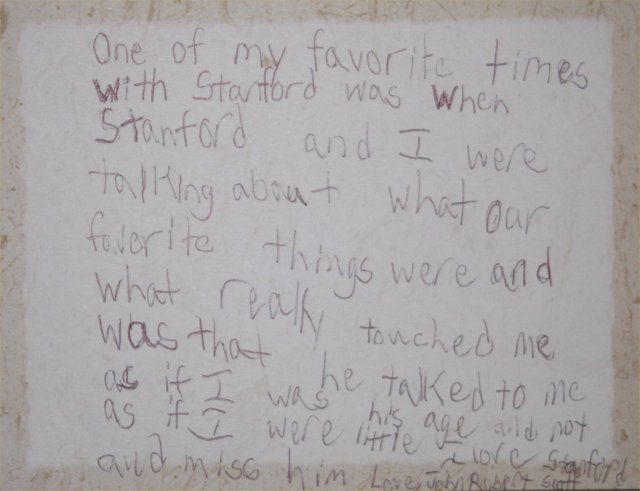 One of my favorite times
with Stanford was when
Stanford and I were
talking about what our
favorite things were and
what really touched me
was that he talked to me
as if I was
as if I were his age and not
little I love Stanford
and miss him Love, John Robert Scott